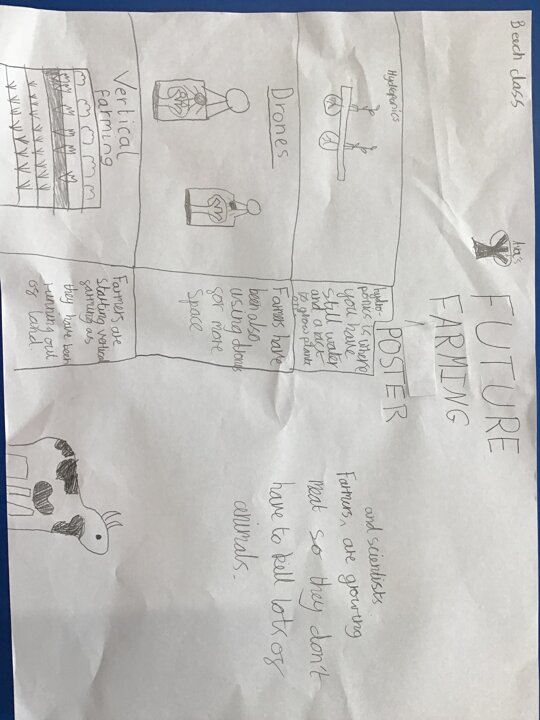 Beech class
Ira's
FUTURE
FARMING
POSTER
Hydroponics
hydro-
ponics is where
you have
still water
and a raft
to grow plants
on
Drones
Farmers have
been also
using drones
for more
space
Vertical
farming
Farmers are
starting vertical
farming as
they have been
running out
of land
and scientists
Farmers ^ are growing
meat so they don't
have to kill lots of
animals.